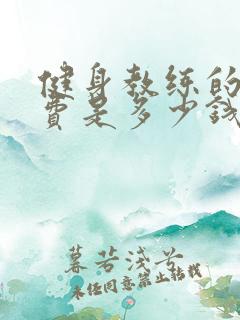 健身教练的
费是多少钱
暮若浅兮
未经同意禁止转载